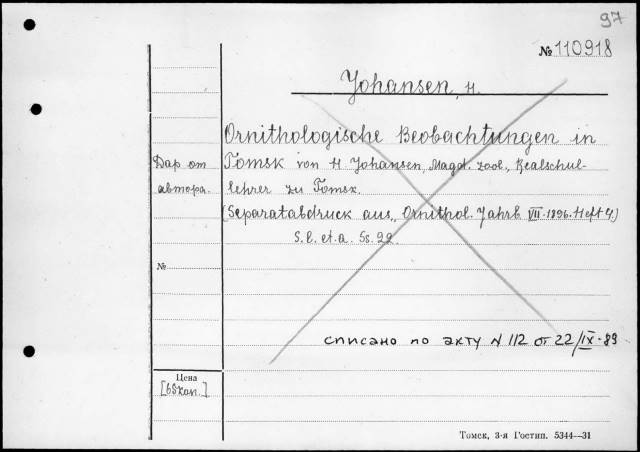 97
№ 110918
Johansen, H.
Ornithologische Beobachtungen in
Дар от
автора.
Tomsk von H. Johansen, Magd. zool., Realschul-
lehrer zu Tomsk.
(Separatabdruck aus „Ornithol. Jahrb. VII. 1896. Heft 4.)
S. l. et. a. Ss. 22.
№
списано по акту N 112 от 22/IX-89
Цена
[65 коп.]
Томск, 3-я Гостип. 5344—31